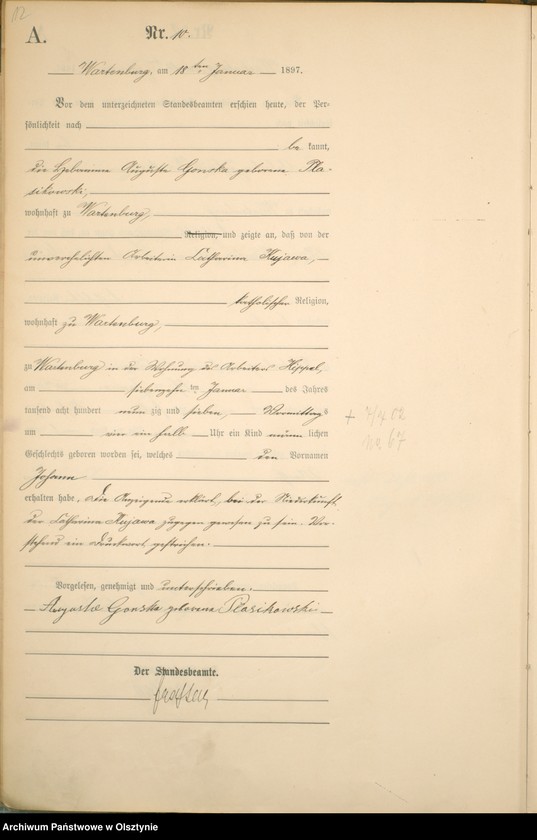 112
A.
Nr. 10.
Wartenburg, am 18 ten Januar 1897.
Vor dem unterzeichneten Standesbeamten erschien heute, der Per-
sönlichkeit nach
be kannt,
die Hebamme Auguste Gonska geborene Pla-
sikowski,
wohnhaft zu Wartenburg,
Religion, und zeigte an, daß von der
unverehelichten Arbeiterin Catharina Kujawa,
katholischer Religion,
wohnhaft zu Wartenburg,
zu Wartenburg in der Wohnung des Arbeiters Hippel,
am siebenzehn ten Januar des Jahres
tausend acht hundert neun zig und sieben, Vormittags
um ein halb Uhr ein Kind männ lichen
Geschlechts geboren worden sei, welches den Vornamen
Johann
erhalten habe. Die Anzeigende erklärt, bei der Niederkunft
der Catharina Kujawa zugegen gewesen zu sein. Vor-
stehend ein Druckwort gestrichen.
Vorgelesen, genehmigt und unterschrieben.
Auguste Gonska geborene Plasikowski
Der Standesbeamte.
+ 7/4 02
No 67
Archiwum Państwowe w Olsztynie